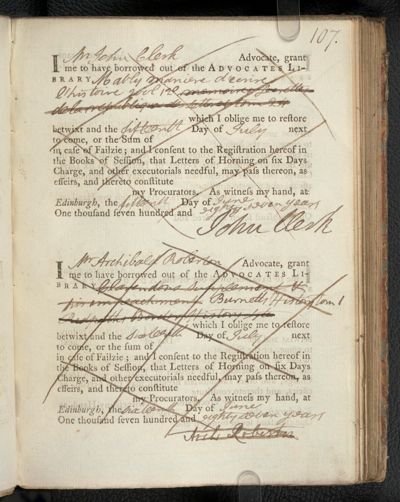 107.
I Mr John Clerk Advocate, grant
me to have borrowed out of the ADVOCATES LI-
BRARY Mably maniere d'ecrire
l'histoire
which I oblige me to restore
betwixt and the fifteenth Day of July next
to come, or the Sum of
in case of Failzie; and I consent to the Registration hereof in
the Books of Session, that Letters of Horning on six Days
Charge, and other executorials needful, may pass thereon, as
effeirs, and thereto constitute
my Procurators. As witness my hand, at
Edinburgh, the fifteenth Day of June
One thousand seven hundred and eighty seven years
John Clerk
I Mr Archibald Robertson Advocate, grant
me to have borrowed out of the ADVOCATES LI-
BRARY Clarendons Supplement &
his impeachment Burnets History tom 1
which I oblige me to restore
betwixt and the sixteenth Day of July next
to come, or the sum of
in case of Failzie; and I consent to the Registration hereof in
the Books of Session, that Letters of Horning on six Days
Charge, and other executorials needful, may pass thereon, as
effeirs, and thereto constitute
my Procurators. As witness my hand, at
Edinburgh, the sixteenth Day of June
One thousand seven hundred and eighty seven years
Arch. Robertson